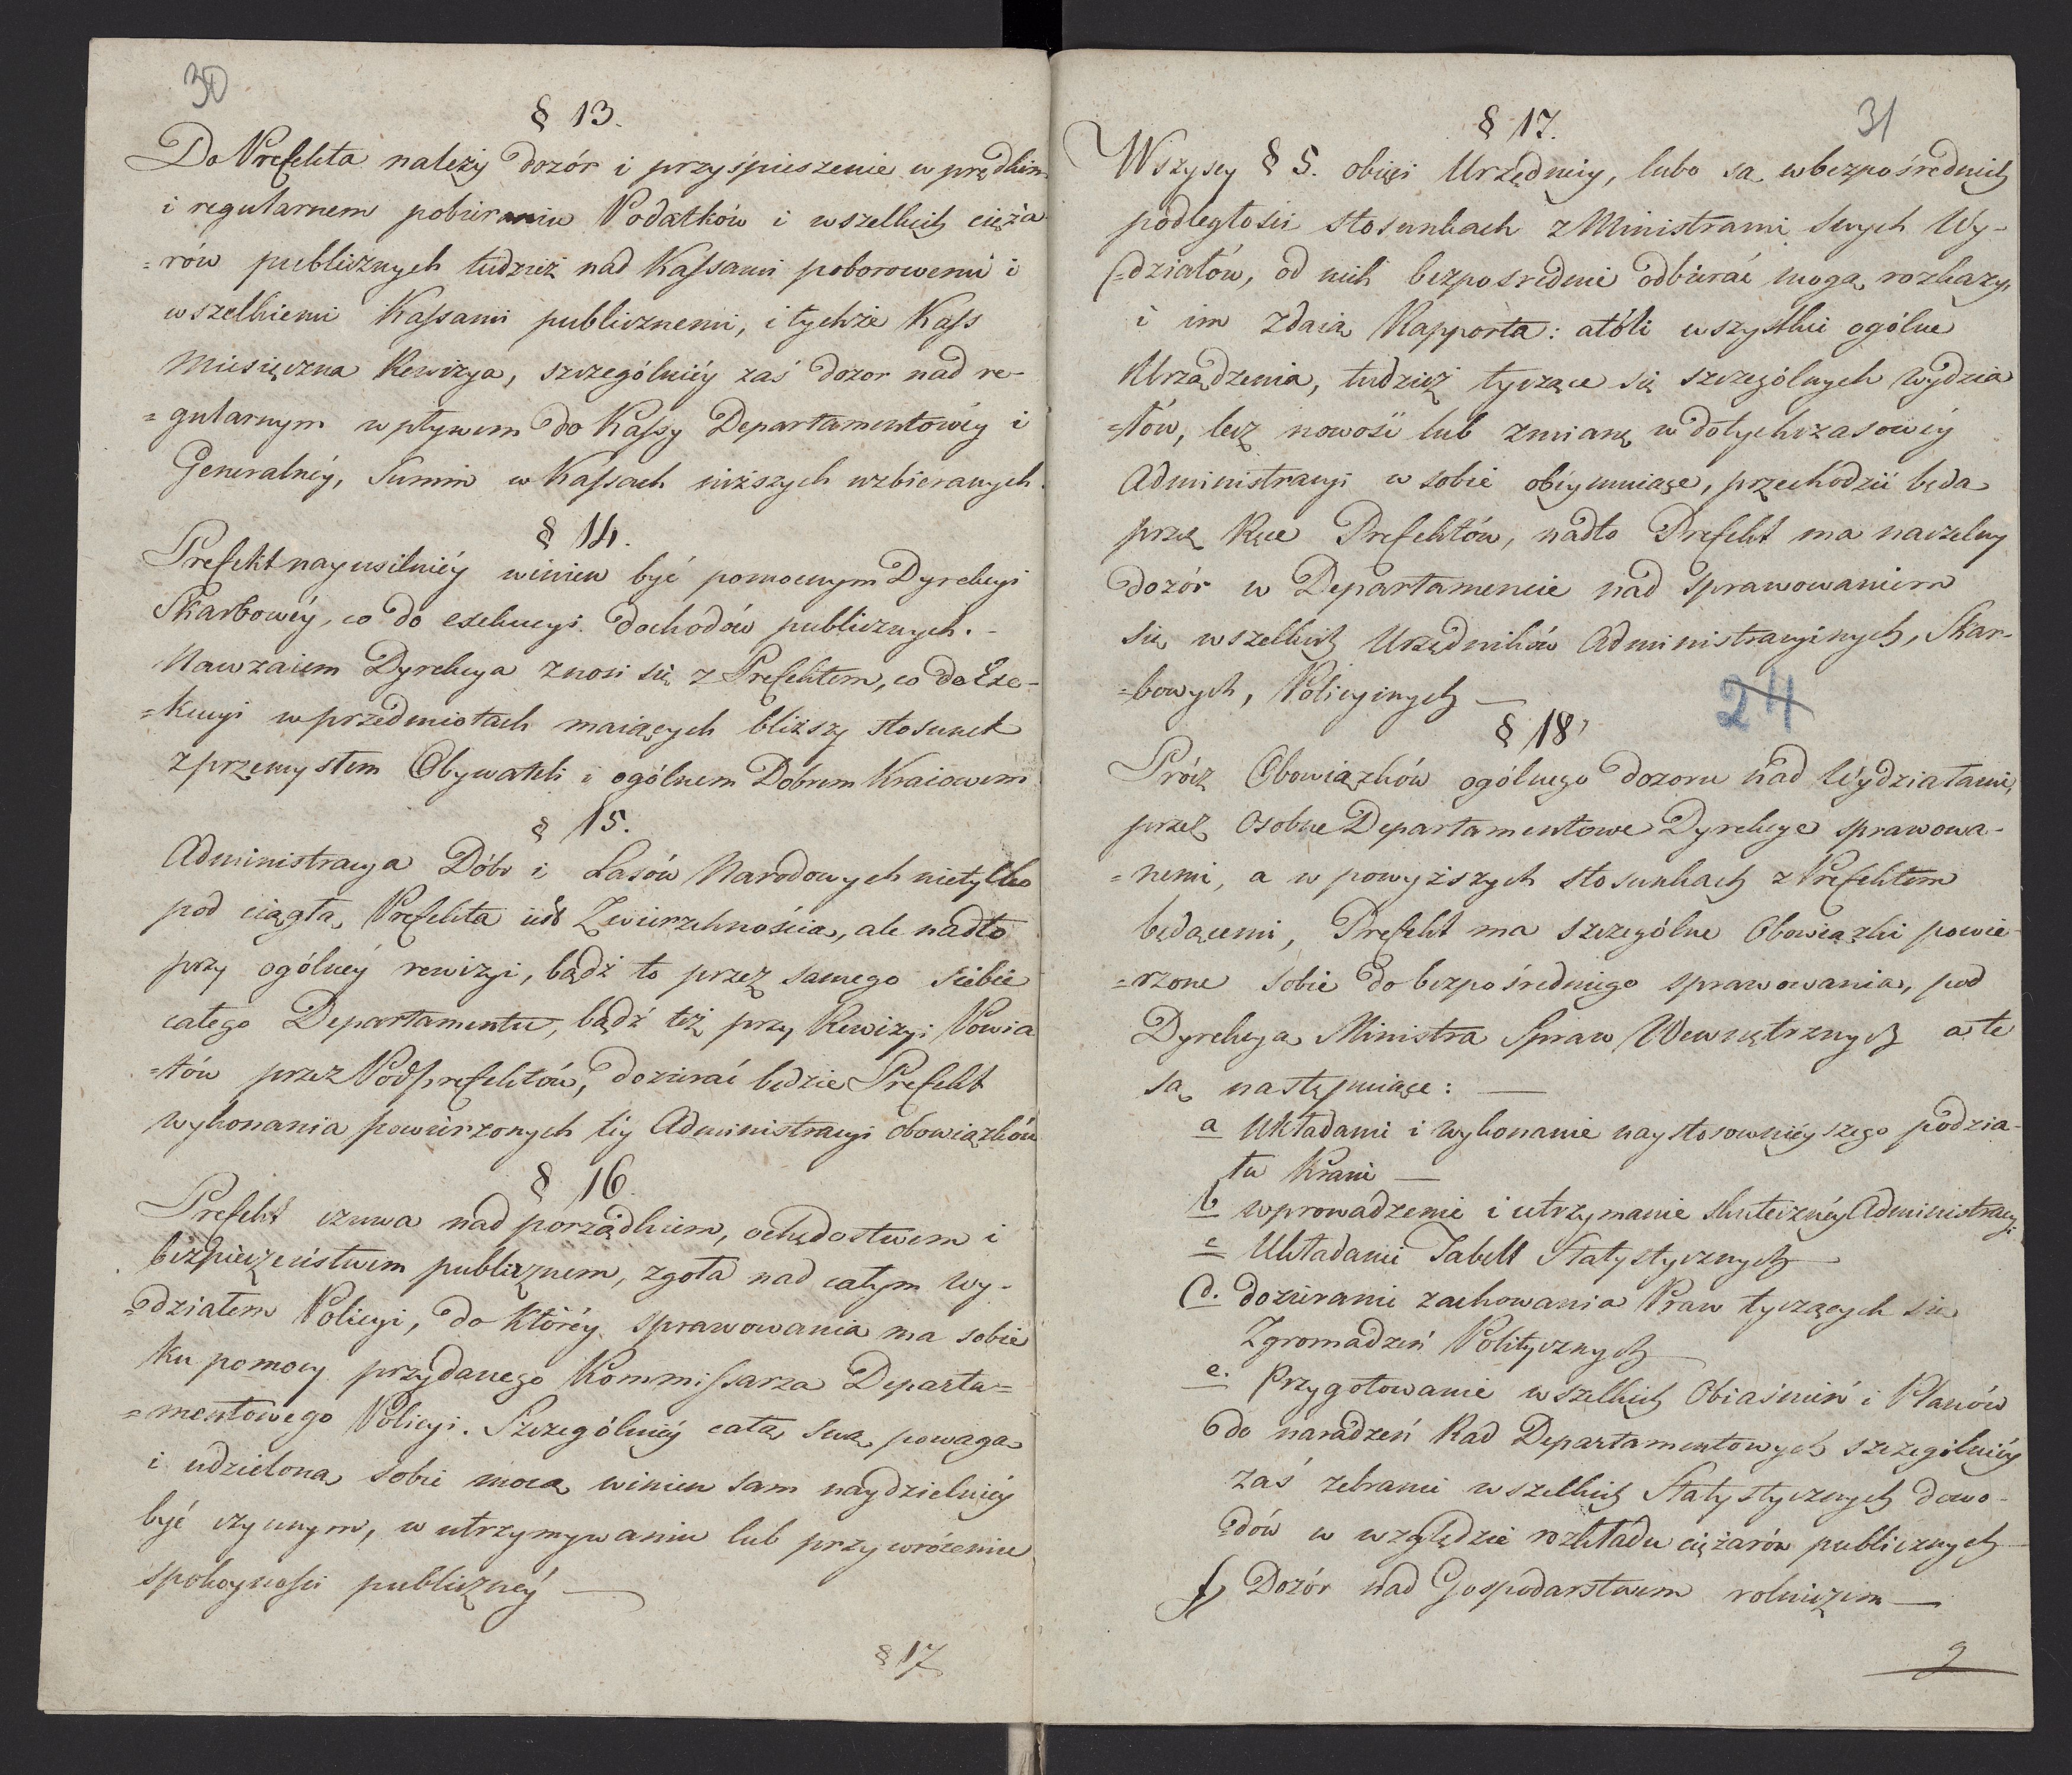 30
§ 13.
Do Prefekta należy dozór i przyśpieszenie w prędkim
i regularnem pobieraniu Podatków i wszelkich cięża
=rów publicznych tudzież nad Kassami poborowemi i
wszelkiemi Kassami publicznemi, i tychże Kass
Miesięczna Rewizya, szczególniéy zaś dozor nad re-
=gularnym wpływem do Kassy Departamentowéy i
Generalnéy, Summ w Kassach niższych wzbieranych.
§ 14.
Prefekt nayusilniéy winien być pomocnym Dyrekcyi
Skarbowéy, co do exekucyi dochodów publicznych.-
Nawzaiem Dyrekcya znosi się z Prefektem, co do Exe-
=kucyi w przedmiotach maiących bliższy stosunek
z przemysłem Obywateli i ogólnem Dobrem Kraiowem
§ 15.
Administracya Dóbr i Lasów Narodowych nietylko
pod ciągłą Prefekta iest Zwierzchnością, ale nadto
przy ogólnéy rewizyi, bądź to przez samego siebie
całego Departamentu, bądź też przy Rewizyi Powia
=tów przez Podprefektów, dozierać będzie Prefekt
wykonania powierzonych téy Administracyi obowiązków
§ 16.
Prefekt czuwa nad porządkiem, ochędostwem i
bezpieczeństwem publicznem, zgoła nad całym Wy-
=działem Policyi, do któréy sprawowania ma sobie
ku pomocy przydanego Kommissarza Departa=
=mentowego Policyi. Szczególniéy całą swą powagą
i udzieloną sobie mocą winien sam naydzielniéy
być czynnym, w utrzymywaniu lub przywróceniu
spokoyności publicznéy —
§ 17
31
§ 17.
Wszyscy § 5. obięci Urzędnicy, lubo są w bezpośrednich
podległości stosunkach z Ministrami swych Wy-
=działów, od nich bezpośrednie odbierać mogą rozkazy,
i im zdaią Rapporta: atóli wszystkie ogólne
Urządzenia, tudzież tyczące się szczególnych wydzia
=łów, lecz nowość lub zmianę w dotychczasowéy
Administracyi w sobie obeymuiące, przechodzić będą
przez Ręce Prefektów, nadto Prefekt ma naczelny
dozór w Departamencie nad sprawowaniem
się wszelkich Urzędników Administracyinych, Skar-
=bowych, Policyinych —
24
§ 18
Prócz Obowiązków ogólnego dozoru nad Wydziałami,
przez osobne Departamentowe Dyrekcye sprawowa-
=nemi, a w powyższych stosunkach z Prefektem
będącemi, Prefekt ma szczególne Obowiązki powie-
=rzone sobie do bezpośredniego sprawowania, pod
Dyrekcyą Ministra Spraw Wewnętrznych a te
są następuiące: —
a Układanie i wykonanie naystosownieyszego podzia-
łu Kraiu —
b wprowadzenie i utrzymanie skutecznéy Administracyi
c Układanie Tabell Statystycznych —
d. dozieranie zachowania Praw tyczących się
Zgromadzeń Politycznych
e. Przygotowanie wszelkich Obiaśnień i Planów
do naradzeń Rad Departamentowych szczególniéy
zaś zebranie wszelkich Statystycznych dowo-
dów w względzie rozkładu ciężarów publicznych
f, Dozór nad Gospodarstwem rolniczem —
g